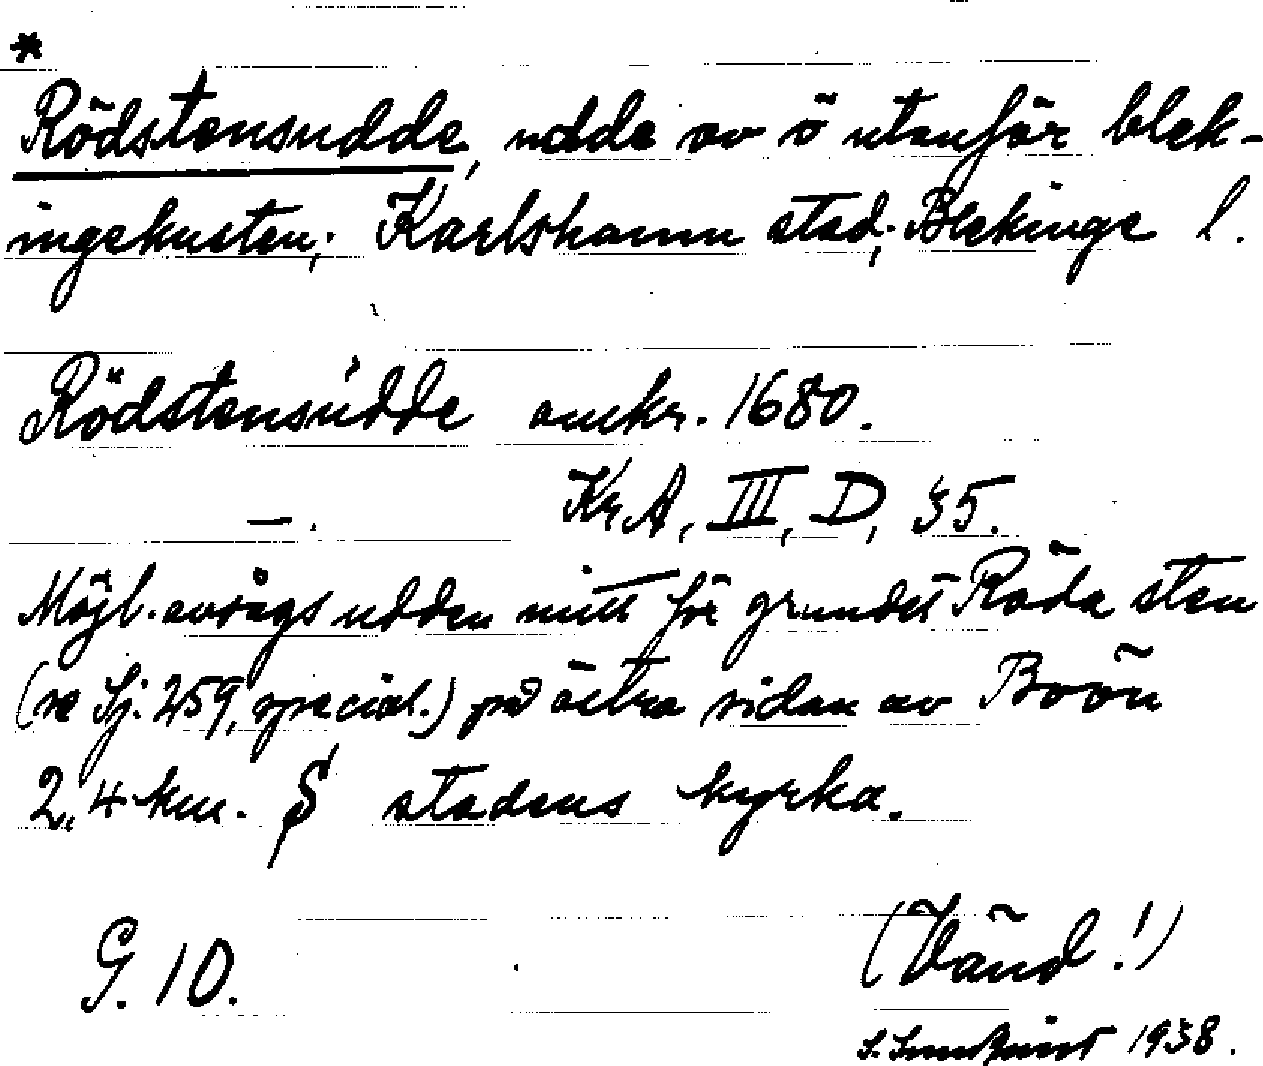 *
Rödstensudde, udde av ö utanför blek-
ingekusten; Karlshamn stad; Blekinge l.
Rödstensudde omkr. 1680.
KrA, III, D, 35.
Möjl. avsågs udden mitt för grundet Röda sten
(se Sj. 259, special.) på östra sidan av Boön
2,4 km. S stadens kyrka.
G. 10.
(Vänd!)
S. Sundkvist 1938.